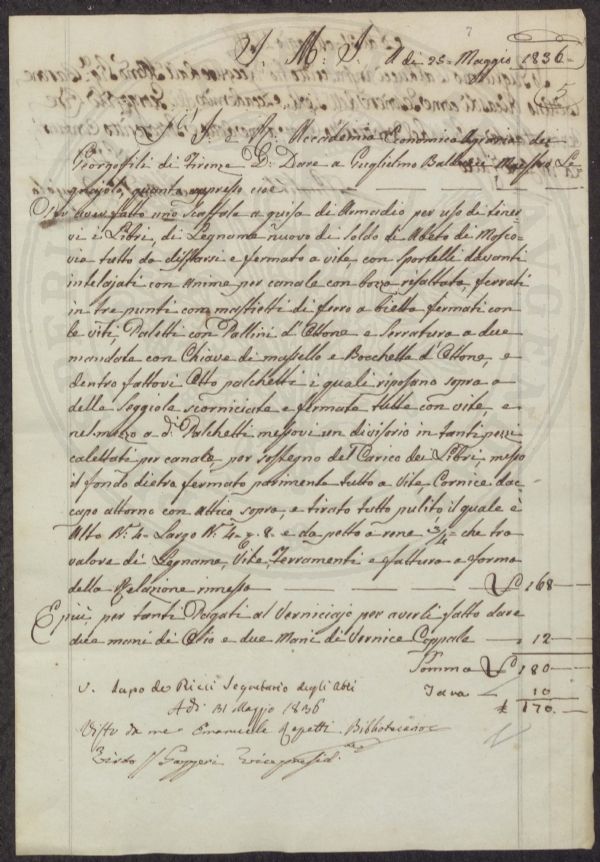 J. M. J. A di 25 = Maggio 1836
L' I. e R. Accademia Economico Agraria dei
Georgofili di Firenze D: Dare a Guglielmo Maestro Le
gnajolo, quanto appresso cioè
Per aver fatto uno Scaffale a guisa di Armadio per uso di tener
vi i Libri, di Legname nuovo di Soldo di Abeto di Mosco
via tutto da disfarsi e fermato a vite, con sportelli davanti
intelajati con Anima per canale con bozza risaltata, ferrati
in tre punti con mastietti di ferro a bietta fermati con
le viti, Paletti con Pallini d'Ottone e Serratura a due
mandate con Chiave di masello e Bocchetta d'Ottone, e
dentro fattovi Otto palchetti i quali riposano sopra a
delle Seggiole scorniciate e fermate tutte con vite, e
nel mezzo a di Palchetti messovi un divisorio in tanti pezzi
calettati per canale, per sostegno del Carico dei Libri, messo
il fondo dietro fermato parimente tutto a Vite, Cornice da
capo attorno con Attico sopra, e tirato tutto pulito il quale è
Alto Bª 4 = Largo Bª 4 = 8 = e da petto a rene 3/4 = che tra
valore di Legname, Vite, Ferramenti e fattura a forma
della Relazione rimessa £ 168
E più per tanti Pagati al Verniciajo per averli fatto dare
due mani di Olio e due Mani di Vernice Coppale 12
Somma £ 180
V. Lapo de Ricci Segretario degli Atti Tara 10
A di 31 Maggio 1836 £ 170
Visto da me Emanuele Repetti Bibliotecario
Visto Gazzeri Vicepresid.te